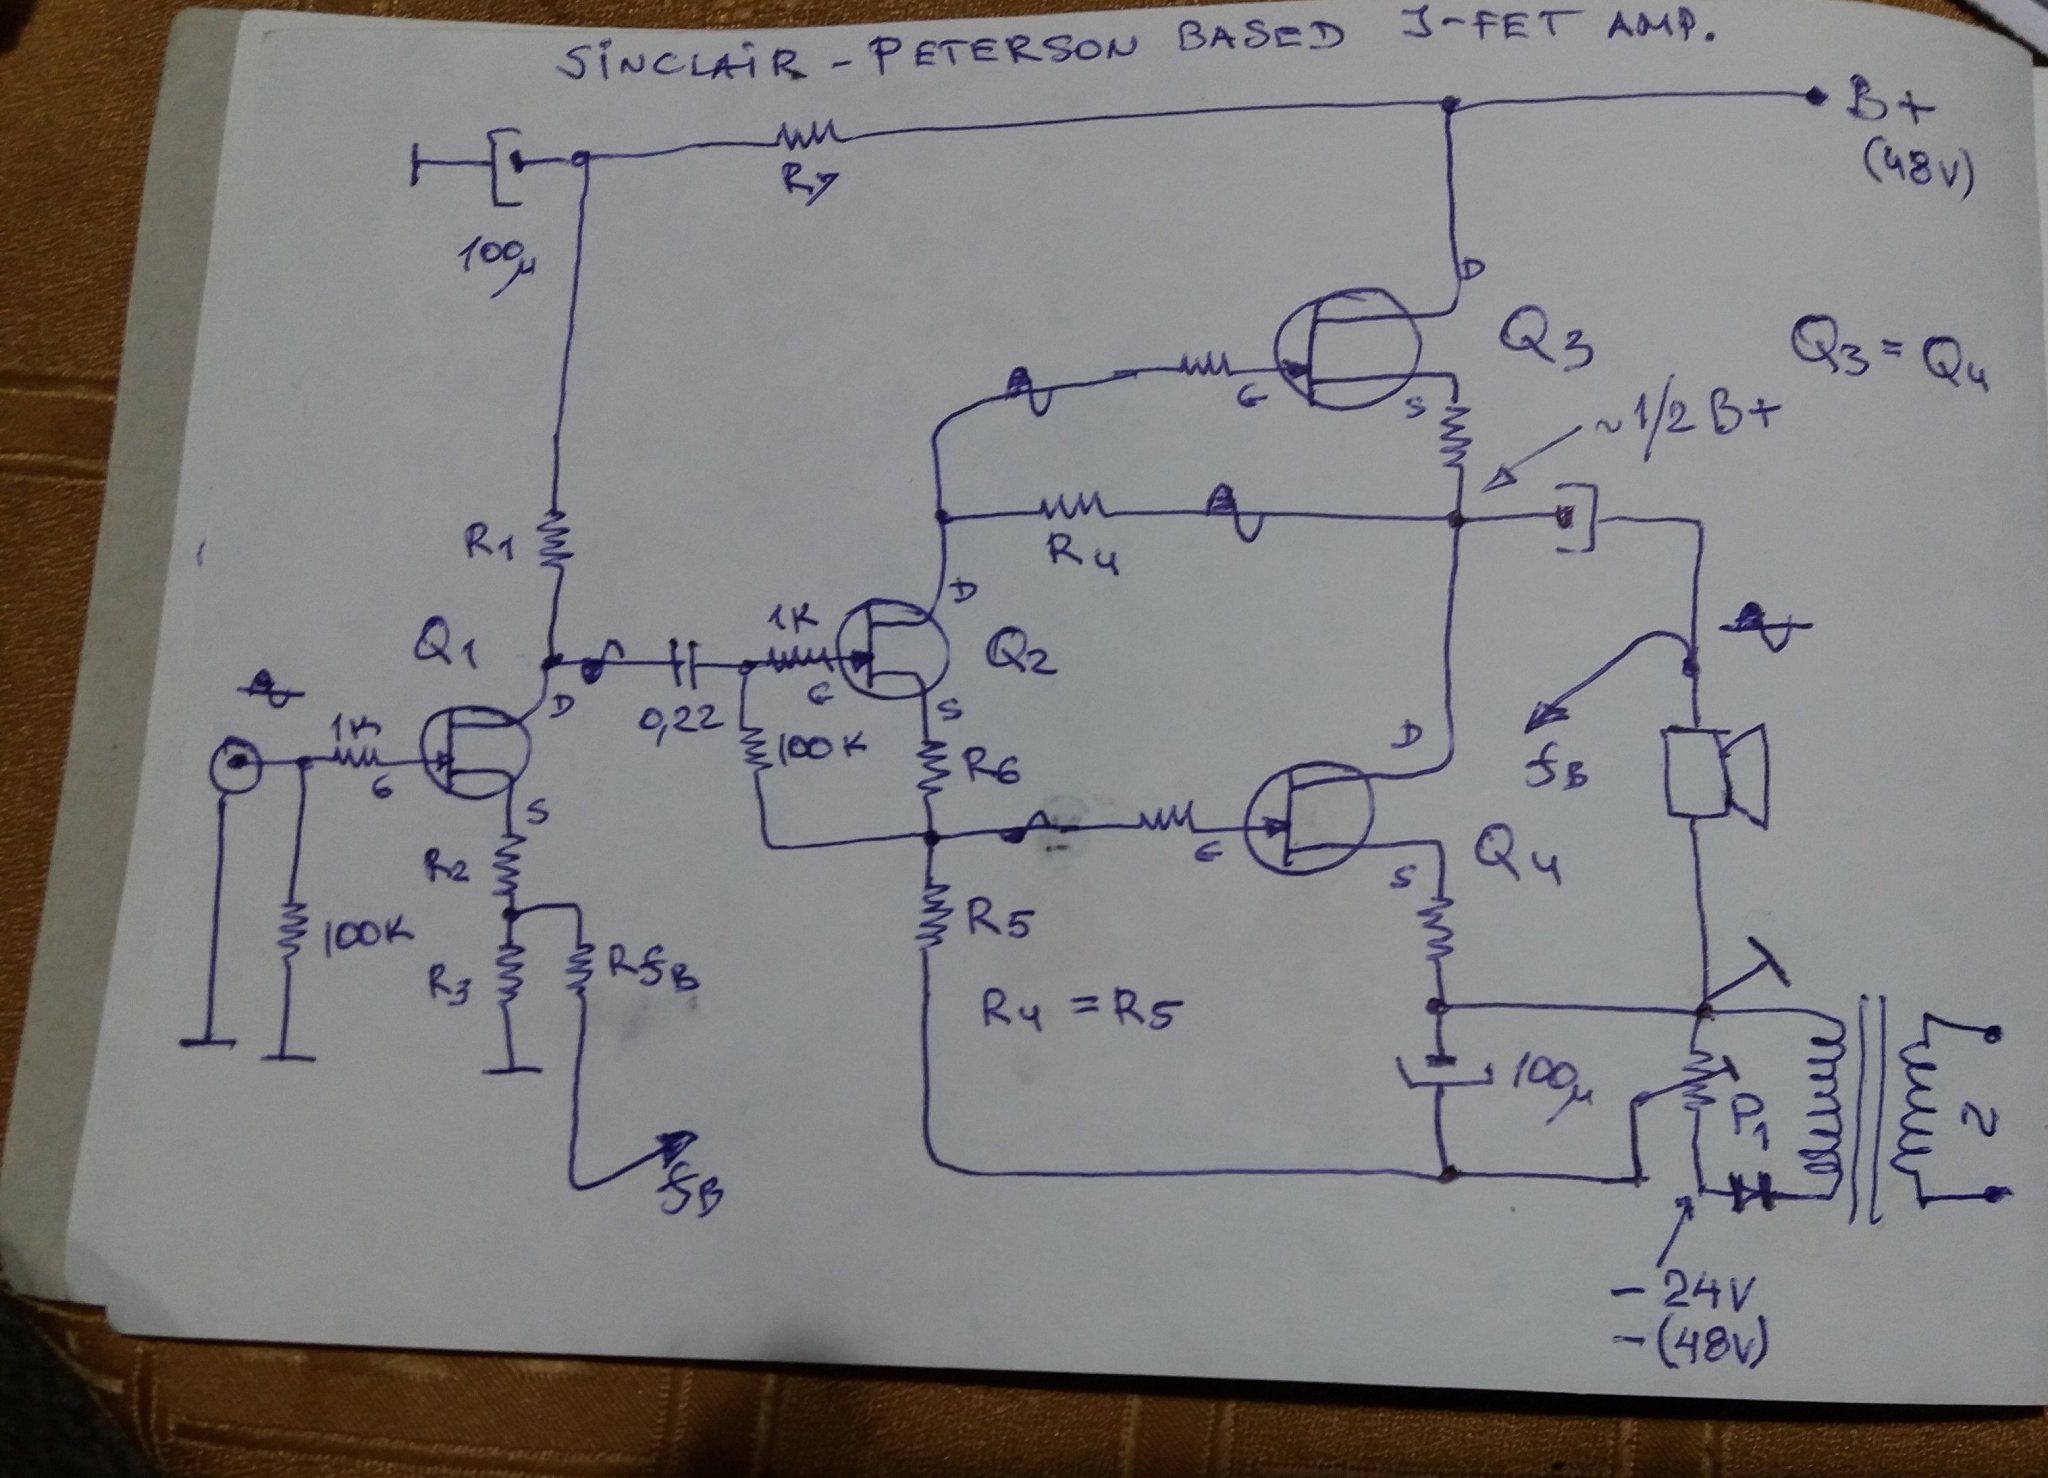 SiNCLAiR - PETERSON BASED J-FET AMP.
B+
(48V)
R7
100µ
D
Q3
Q3 = Q4
G
S
~1/2 B+
R1
R4
D
Q1
1K
Q2
D
G
S
0,22
100K
R6
1K
G
S
D
fB
G
S
Q4
R2
100K
R3
RfB
R5
R4 = R5
100µ
P1
2
fB
- 24V
- (48V)